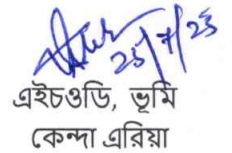 25/7/25
এইচওডি, ভূমি
কেন্দা এরিয়া